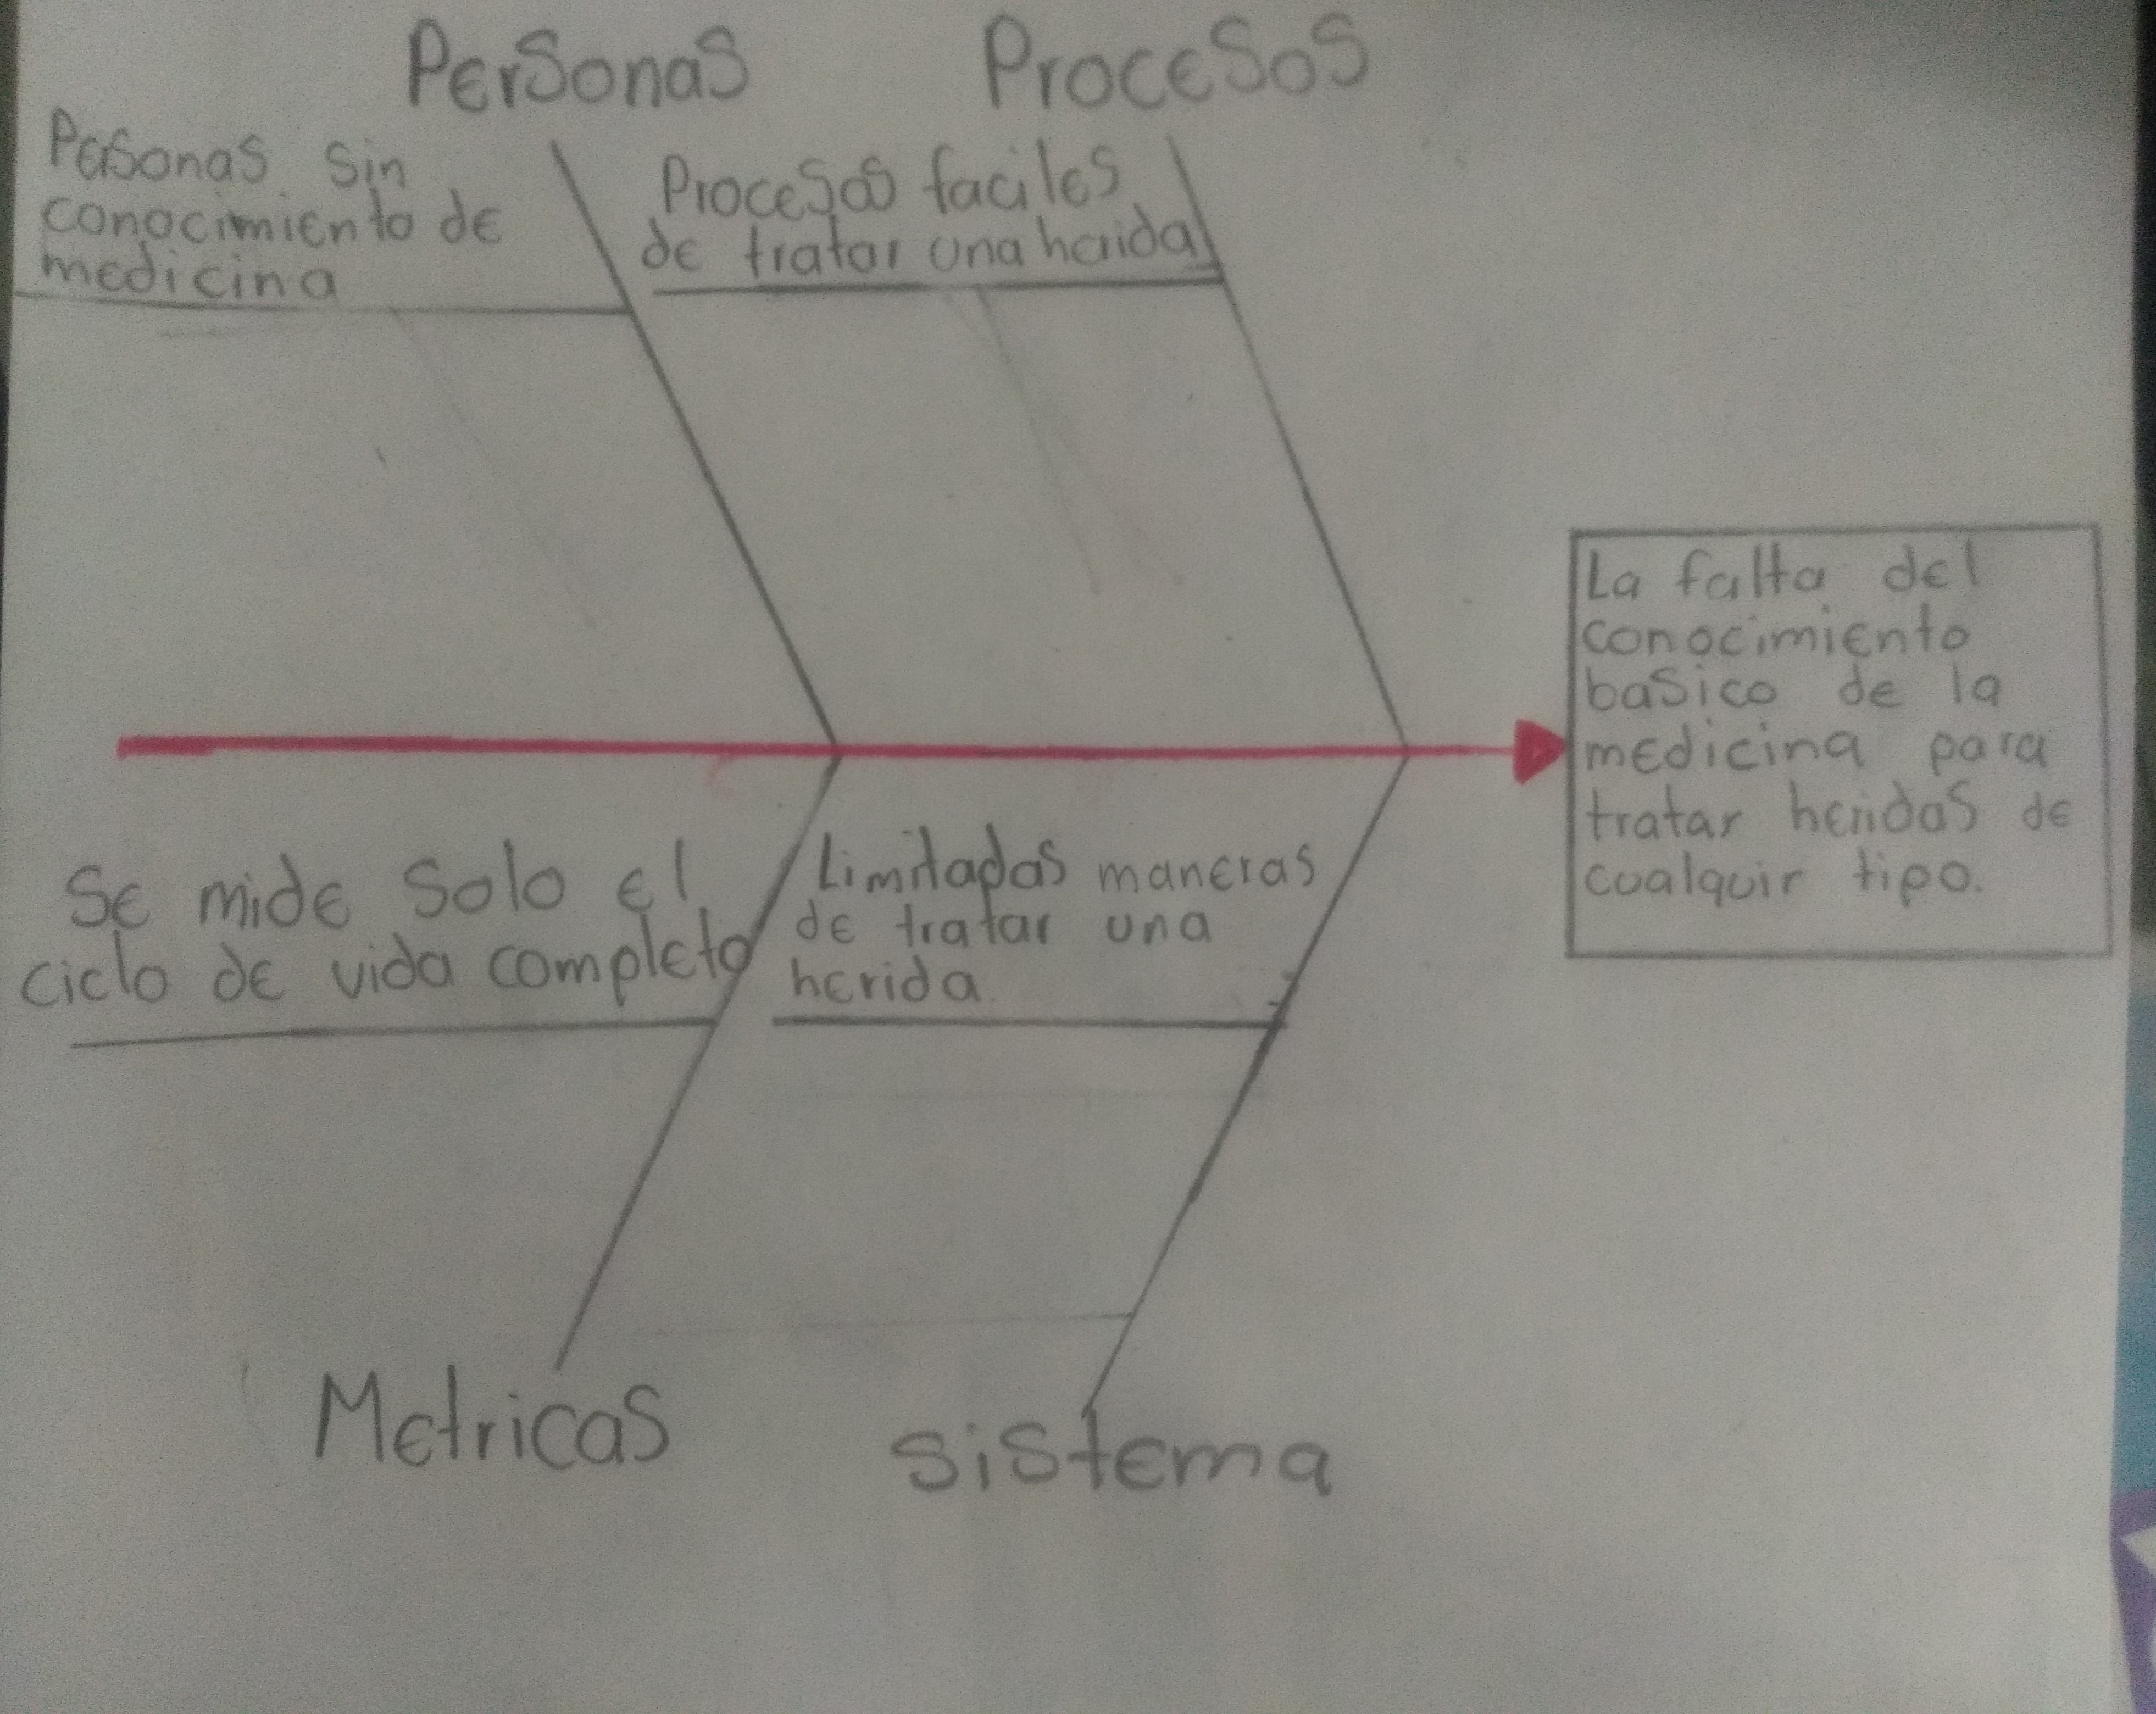 Personas
Procesos
Personas sin
conocimiento de
medicina
Procesos faciles
de tratar una herida
La falta del
conocimiento
basico de la
medicina para
tratar heridas de
cualquir tipo.
Se mide solo el
ciclo de vida completo
Limitadas maneras
de tratar una
herida.
Metricas
sistema